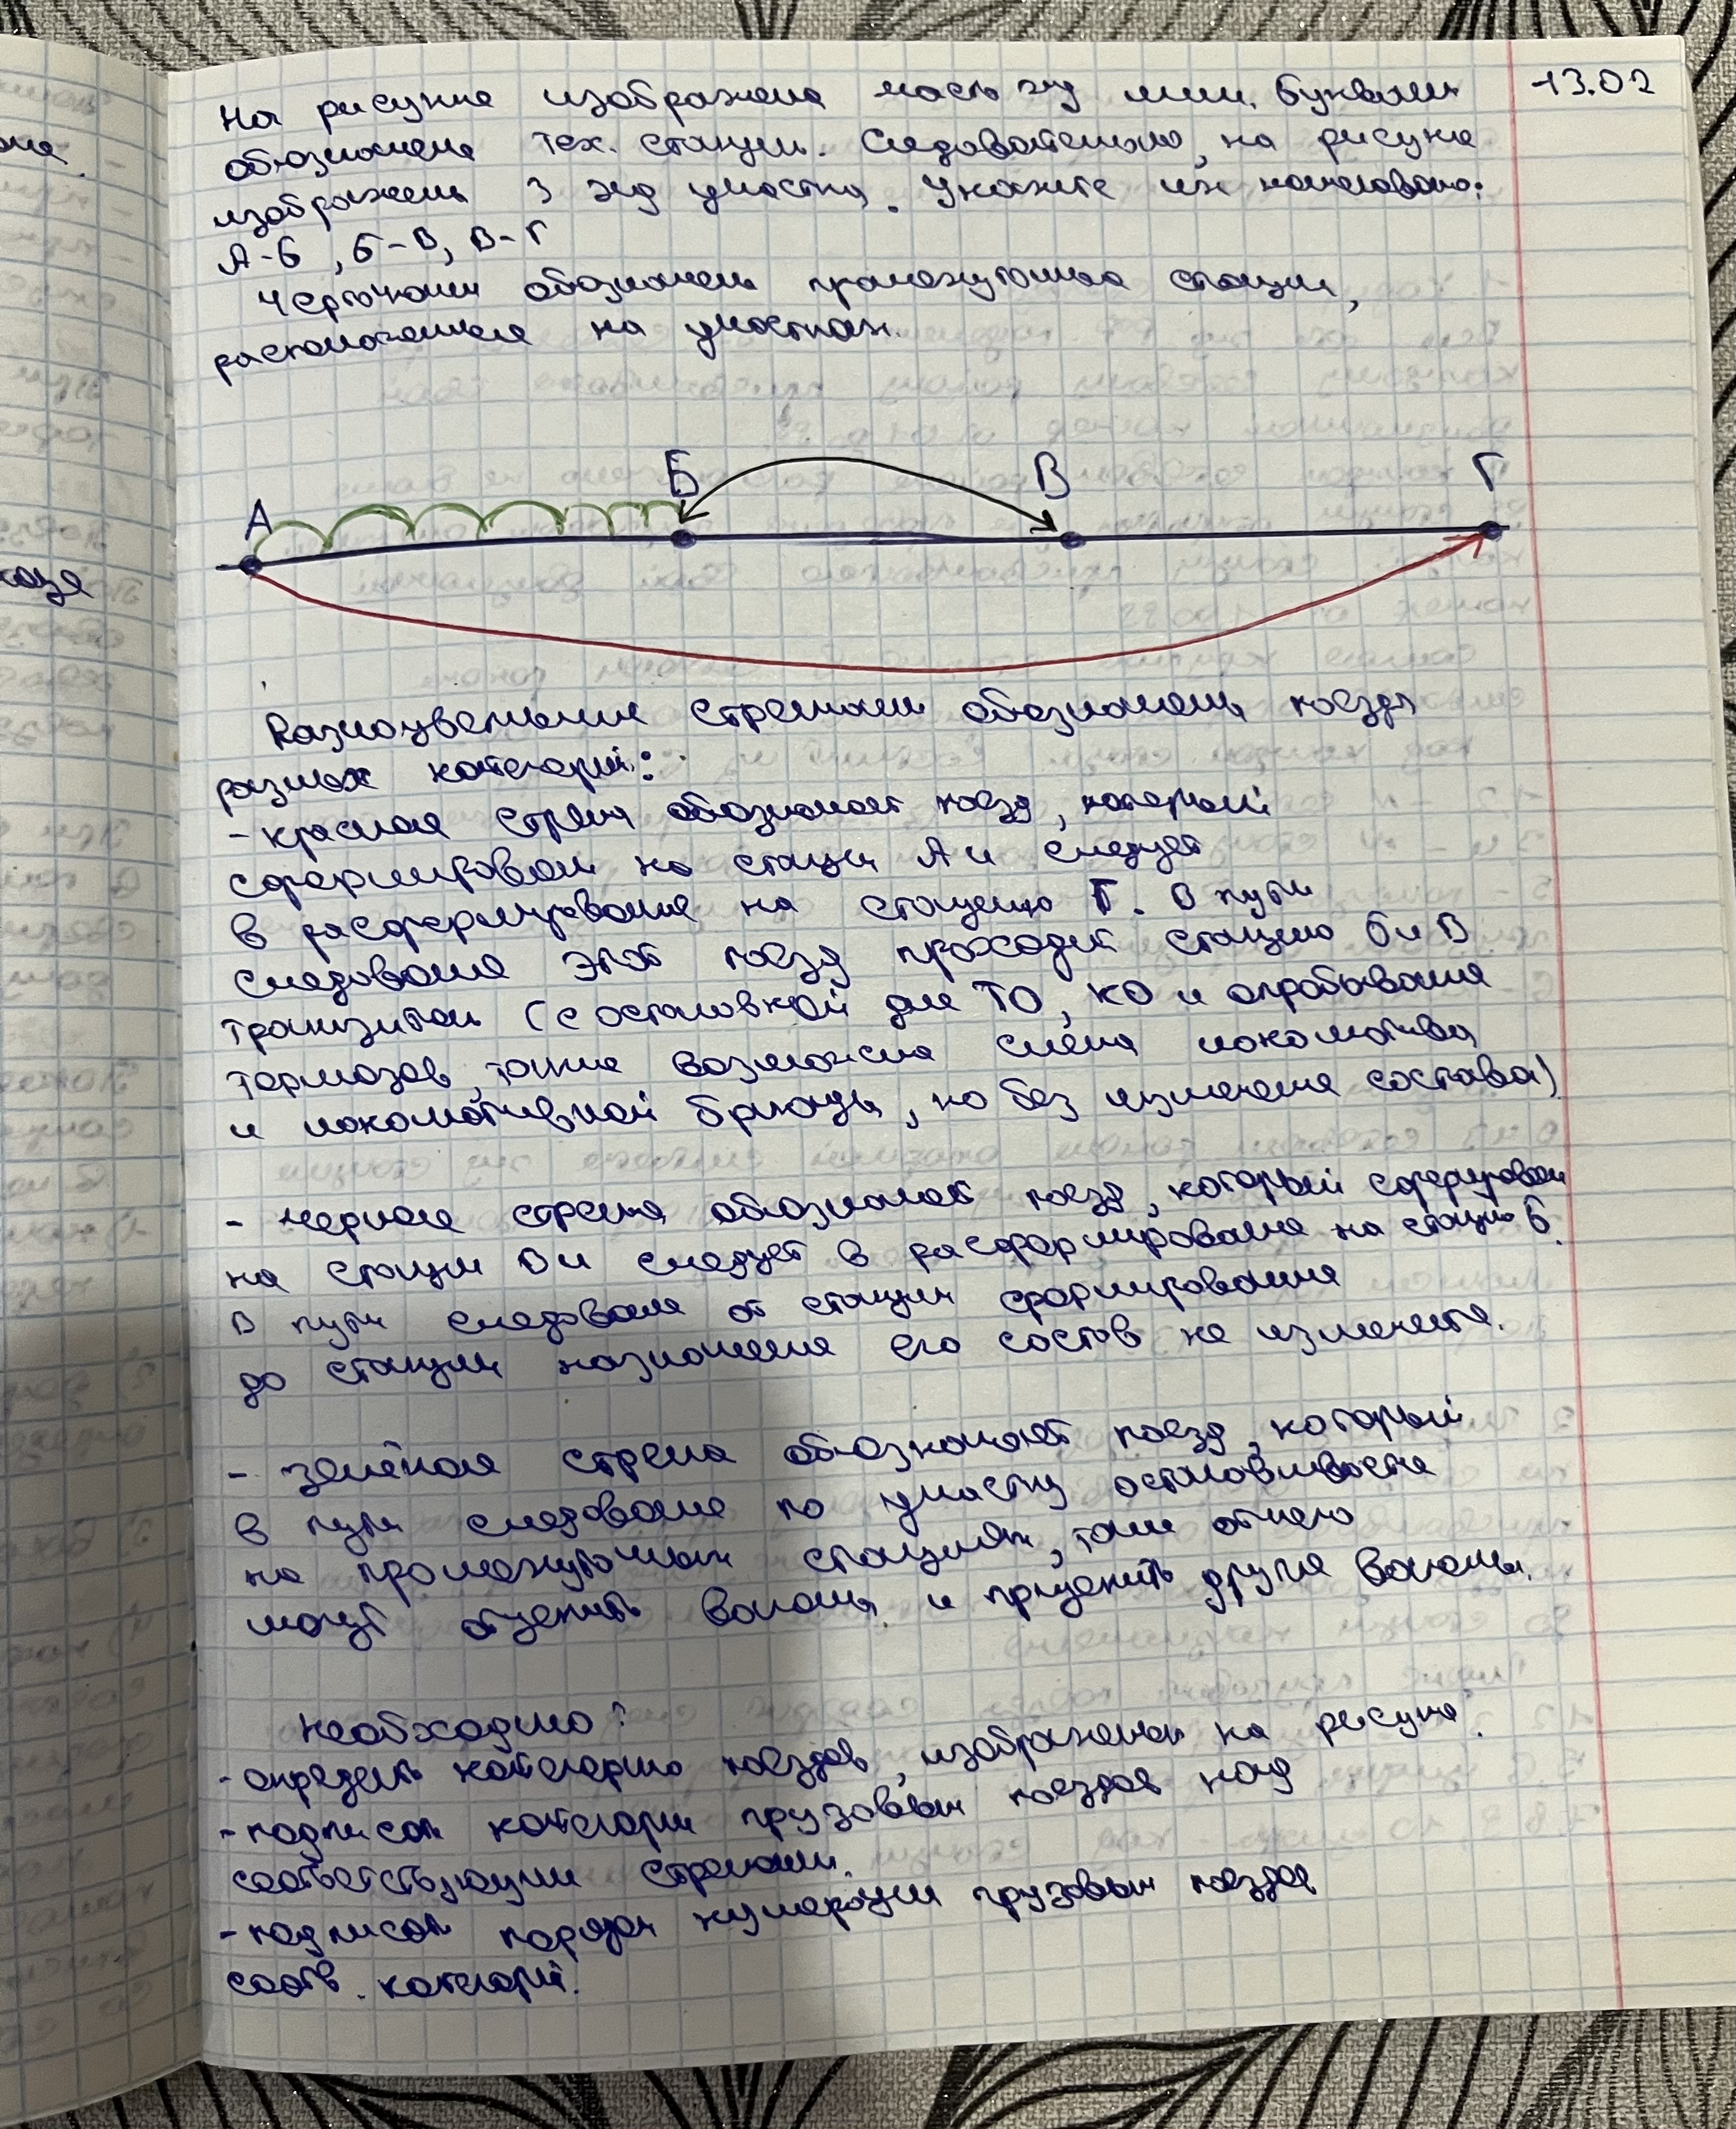 13.02
На рисунке изображена часть жд лин. Буквами
обозначены тех. станции. Следовательно, на рисунке
изображены 3 жд участка. Укажите их наименование:
А-Б, Б-В, В-Г
Черточками обозначены промежуточные станции,
расположенные на участках.
А Б В Г
Разноцветными стрелками обозначены поезда
разных категорий:
- красная стрелка обозначает поезд, который
сформирован на станции А и следует
в расформирование на станцию Г. В пути
следования этот поезд проходит станцию Б и В
транзитом (с остановкой для ТО, КО и опробования
тормозов, также возможна смена локомотива
и локомотивной бригады, но без изменения состава)
- черная стрелка обозначает поезд, который сформирован
на станции В и следует в расформирование на станцию Б.
В пути следования от станции формирования
до станции назначения его состав не изменяется.
- зелёная стрелка обозначает поезд, который
в пути следования по участку останавливается
на промежуточных станциях, там от него
могут отцепить вагоны и прицепить другие вагоны.
Необходимо:
- определить категорию поездов, изображенных на рисунке.
- подписать категории грузовых поездов над
соответствующими стрелками.
- подписать порядок нумерации грузовых поездов
соотв. категорий.